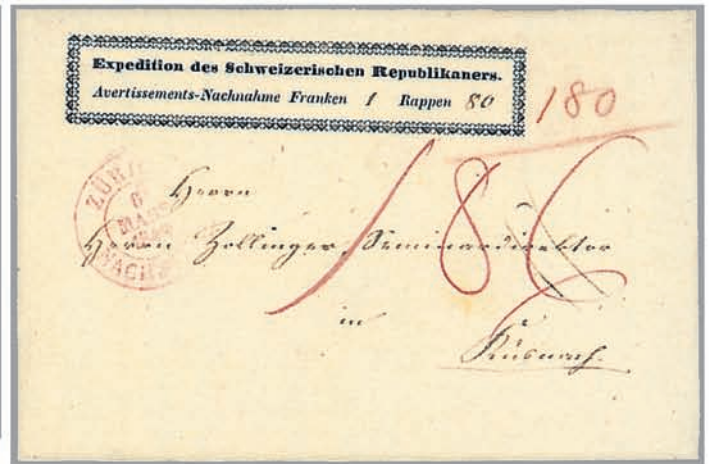 Expedition des Schweizerischen Republikaners.
Avertissements-Nachnahme Franken 1 Rappen 80
180
186
ZÜRI
6
MARS
NACH
Herrn
Herrn Zollinger, Seminardirektor
in
Küsnach.